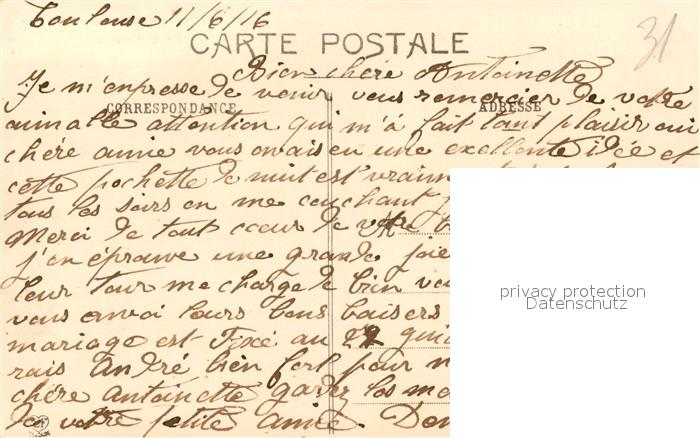 Toulouse 11/6/16
31
CARTE POSTALE
Bien chére Antoinette
Je m'enpresse de venir vous remercier de votre
CORRESPONDANCE
ADRESSE
aimable attention qui m'à fait tant plaisir oui
chére amie vous avais eu une exellente idée et
cette pochette de nuit est vraim
tous les soirs en me couchant
Merci de tout cœur de votre b
j'en éprouve une grande joie
leur tour me charge de bien vou
vous envoi leurs bons baisers
mariage est Fixé au 22 qui
rais André bien fort pour m
chére Antoinette gardez les me
de votre petite amie. Den
privacy protection
Datenschutz